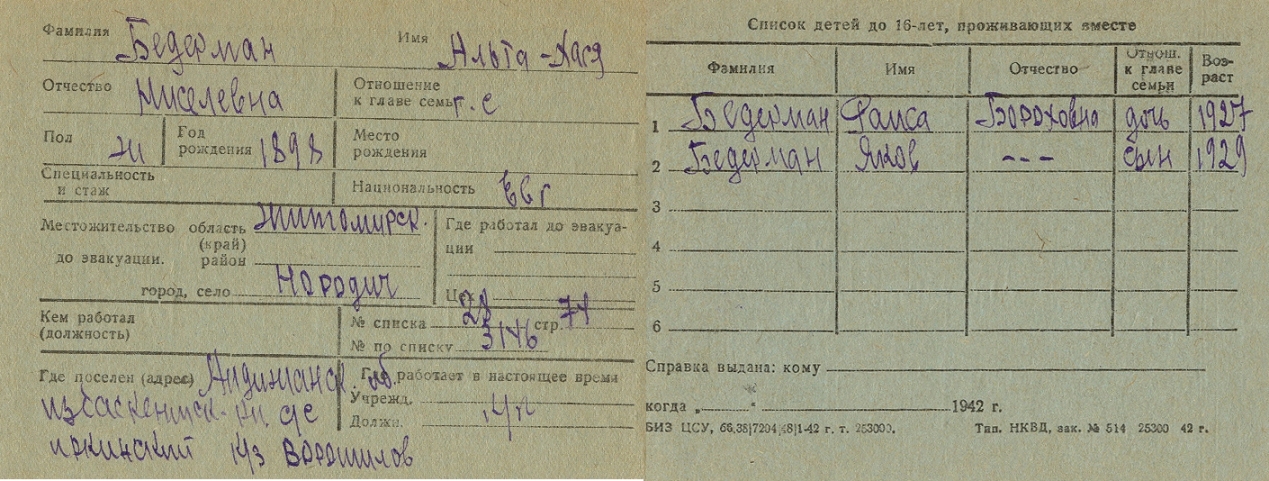 Фамилия Бедерман Имя Альта-Хася
Отчество Миселевна Отношение к главе семьи г. с
Пол Ж Год рождения 1898 Место рождения
Специальность и стаж Национальность Евр
Местожительство до эвакуации. область (край) Житомирск.
район
город, село Народич
Где работал до эвакуации
Цех 28
Кем работал (должность) № списка стр. 71
№ по списку 3146
Где поселен (адрес) Андижанск. об.
избаскентск. р-н с/с
иркинский к/з Ворошилов
Где работает в настоящее время
Учрежд.
Должн.
Список детей до 16-лет, проживающих вместе
Фамилия Имя Отчество Отнош. к главе семьи Возраст
1 Бедерман Фаиса Бороховна дочь 1927
2 Бедерман Яков --- сын 1929
3
4
5
6
Справка выдана: кому
когда „ " 1942 г.
БИЗ ЦСУ, 66,38|7204,48|1-42 г. т. 253000. Тип. НКВД, зак. № 514 25300 42 г.